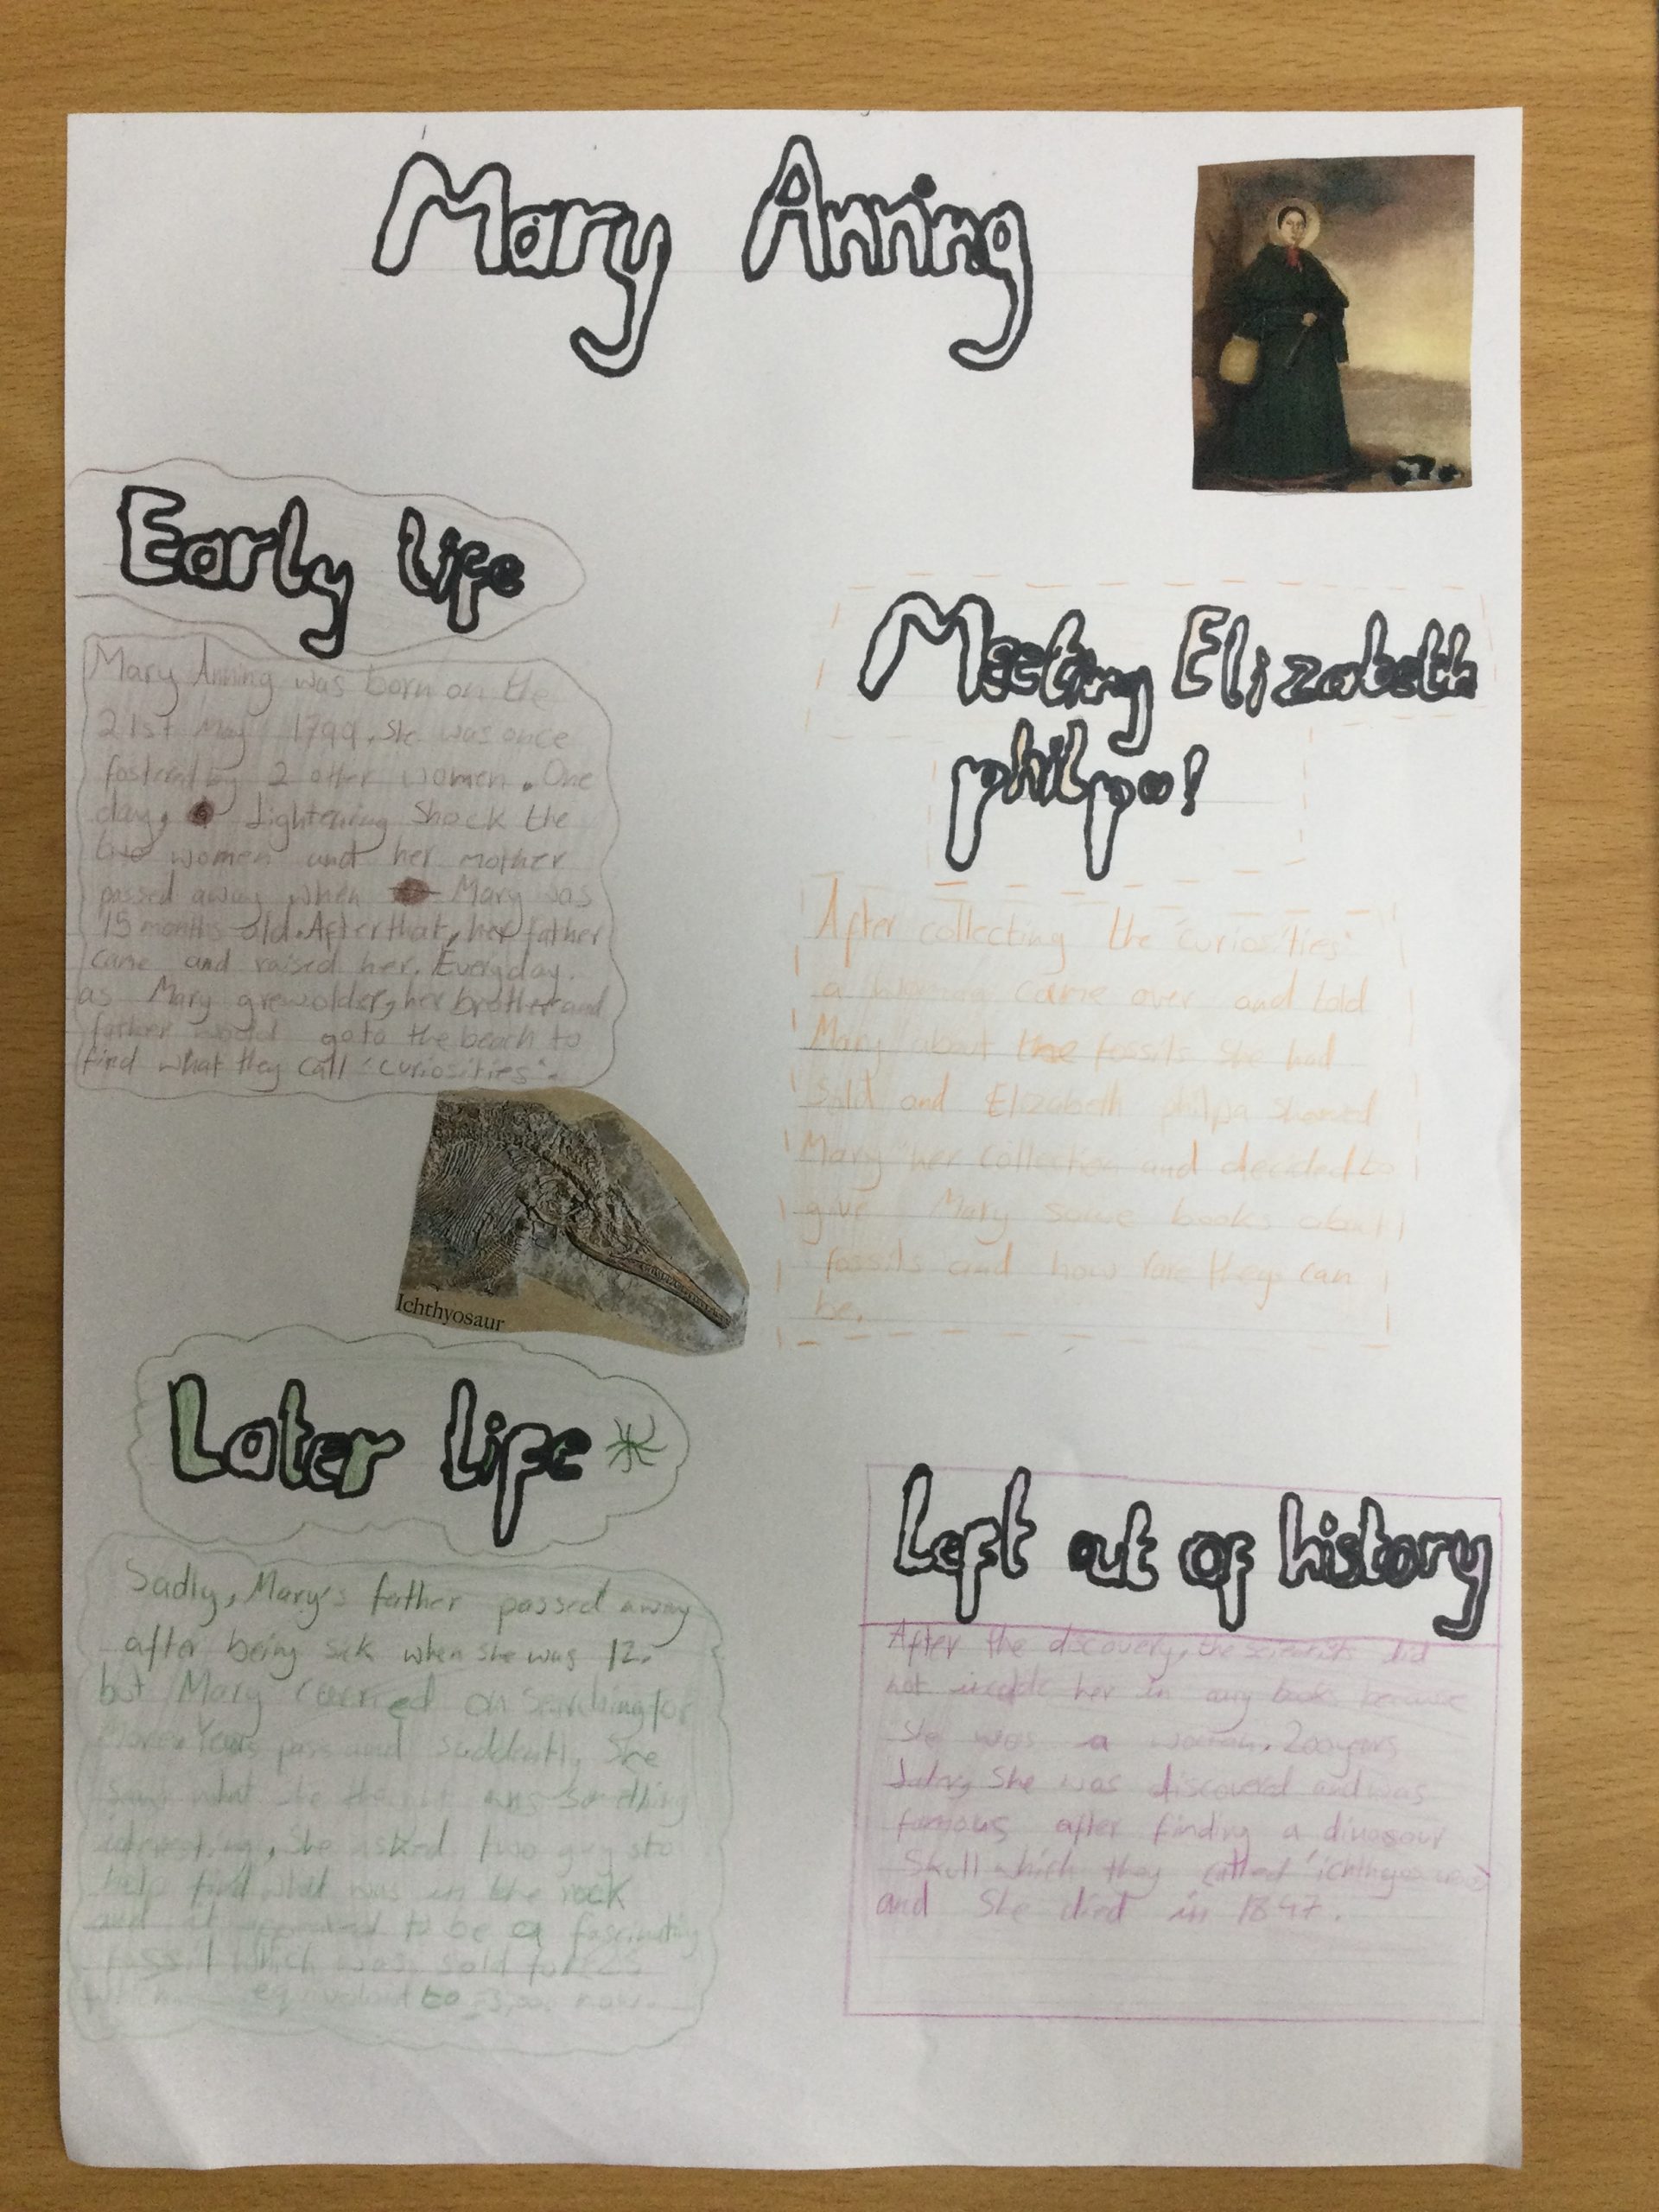 Mary Anning
Early life
Mary Anning was born on the
21st May 1799. She was once
fostered by 2 other women. One
day, Lightening Shock the
two women and her mother
passed away when Mary was
15 months old. After that, her father
came and raised her. Everyday.
as Mary grew older, her brother and
father would go to the beach to
find what they call 'curiosities'.
Ichthyosaur
Meeting Elizabeth
philpo!
After collecting the 'curiosities'
a woman came over and told
Mary about the fossils She had
Sold and Elizabeth philpa showed
Mary her collection and decided to
give Mary some books about
fossils and how rare they can
be.
Later life
Sadly, Mary's father passed away
after being sick when she was 12.
but Mary carried on Searching for
More. Years pass and suddently, She
saw what she thought was something
interesting, She asked two guys to
help find what was in the rock
and it appeared to be a fascinating
fossil which was sold for £23
which equivalent to £3,000 now.
Left out of history
After the discovery, the scientists did
not include her in any books because
She was a woman. 200 years
Later, She was discovered and was
famous after finding a dinosaur
Skull which they called
and She died in 1847.